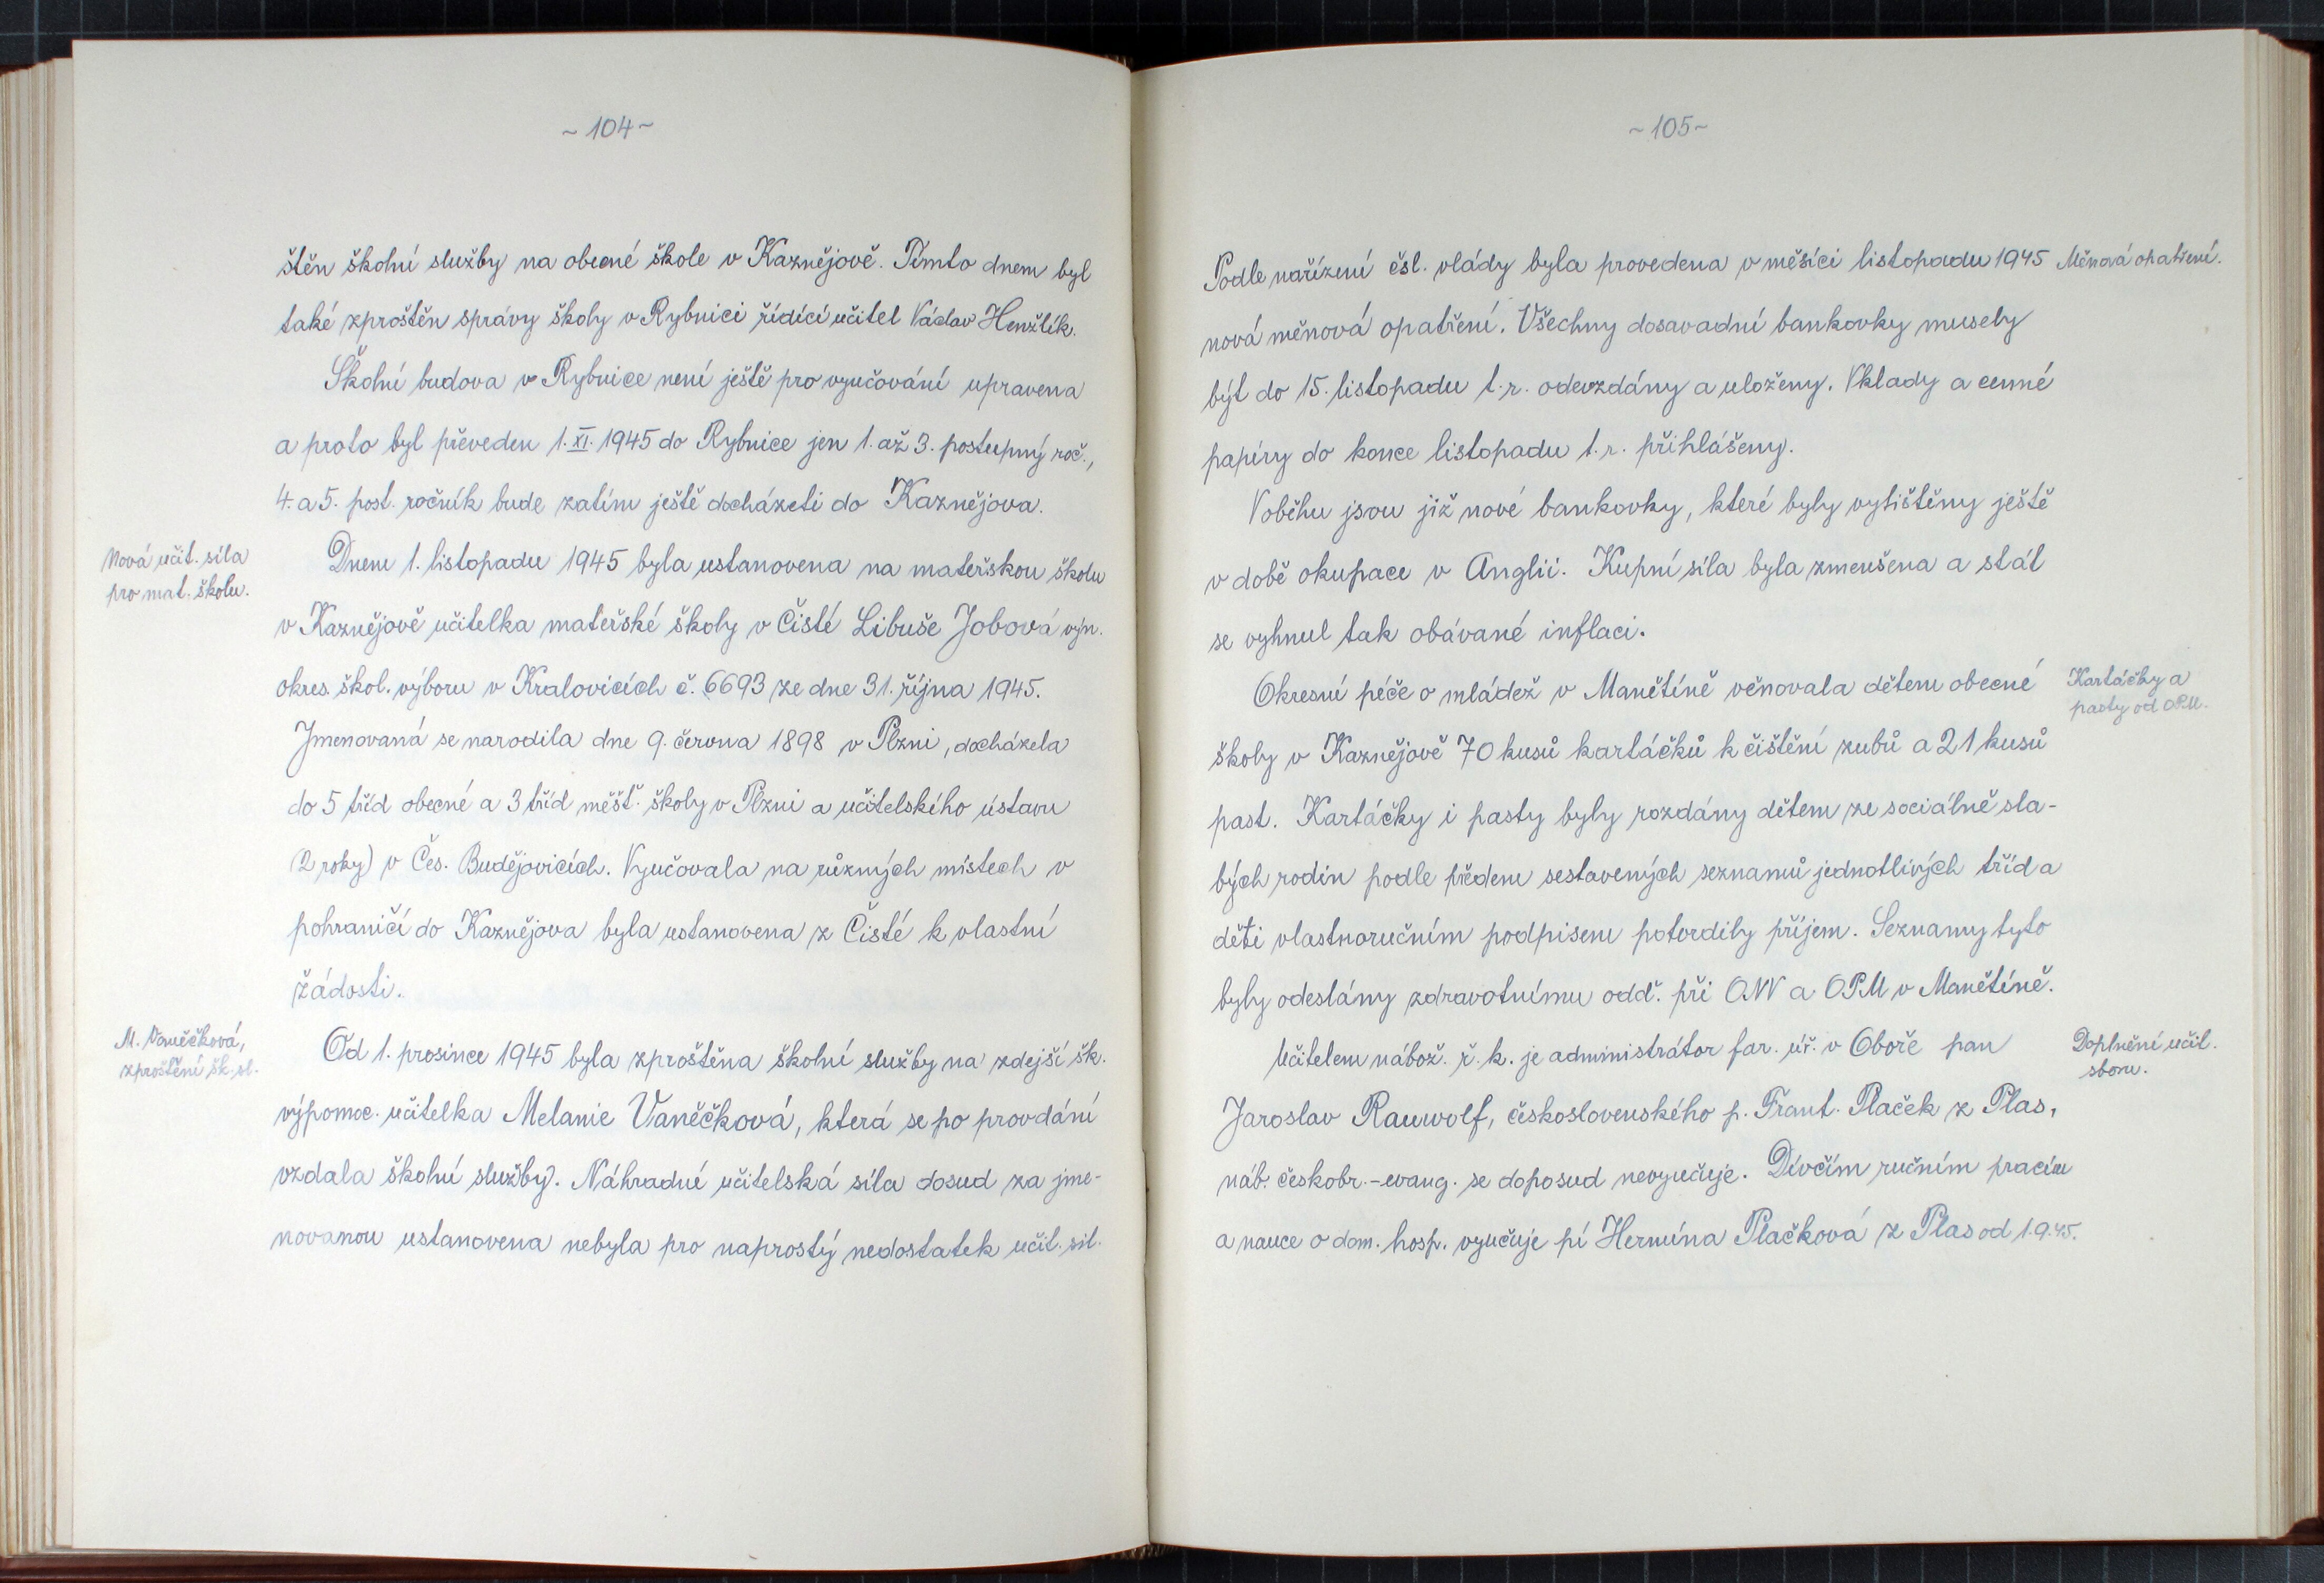 ~ 104 ~
štěn školní služby na obecné škole v Kaznějově. Tímto dnem byl
také zproštěn správy školy v Rybnici řídící učitel Václav Henžlík.
Školní budova v Rybnice není ještě pro vyučování upravena
a proto byl převeden 1. XI. 1945 do Rybnice jen 1. až 3. postupný roč.,
4. a 5. post. ročník bude zatím ještě docházeti do Kaznějova.
Nová učit. síla
pro mat. školu.
Dnem 1. listopadu 1945 byla ustanovena na mateřskou školu
v Kaznějově učitelka mateřské školy v Čisté Libuše Jobová výn.
okres. škol. výboru v Kralovicích č. 6693 ze dne 31. října 1945.
Jmenovaná se narodila dne 9. června 1898 v Plzni, docházela
do 5 tříd obecné a 3 tříd měšť. školy v Plzni a učitelského ústavu
(2 roky) v Čes. Budějovicích. Vyučovala na různých místech v
pohraničí do Kaznějova byla ustanovena z Čisté k vlastní
žádosti.
M. Vaněčková,
zproštění šk. sl.
Od 1. prosince 1945 byla zproštěna školní služby na zdejší šk.
výpomoc. učitelka Melanie Vaněčková, která se po provdání
vzdala školní služby. Náhradní učitelská síla dosud za jme-
novanou ustanovena nebyla pro naprostý nedostatek učit. sil.
~ 105 ~
Podle nařízení čsl. vlády byla provedena v měsíci listopadu 1945
Měnová opatření.
nová měnová opatření. Všechny dosavadní bankovky musely
být do 15. listopadu t. r. odevzdány a uloženy. Vklady a cenné
papíry do konce listopadu t. r. přihlášeny.
V oběhu jsou již nové bankovky, které byly vytištěny ještě
v době okupace v Anglii. Kupní síla byla zmenšena a stát
se vyhnul tak obávané inflaci.
Okresní péče o mládež v Manětíně věnovala dětem obecné
Kartáčky a
pasty od OPM.
školy v Kaznějově 70 kusů kartáčků k čištění zubů a 21 kusů
past. Kartáčky i pasty byly rozdány dětem ze sociálně sla-
bých rodin podle předem sestavených seznamů jednotlivých tříd a
děti vlastnoručním podpisem potvrdily příjem. Seznamy tyto
byly odeslány zdravotnímu odd. při ONV a OPM v Manětíně.
Učitelem nábož. ř. k. je administrátor far. úř. v Oboře pan
Doplnění učit.
sboru.
Jaroslav Rauwolf, československého p. Frant. Plaček z Plas,
náb. českobr.-evang. se doposud nevyučuje. Dívčím ručním pracím
a nauce o dom. hosp. vyučuje pí Hermína Plačková z Plas od 1.9.45.